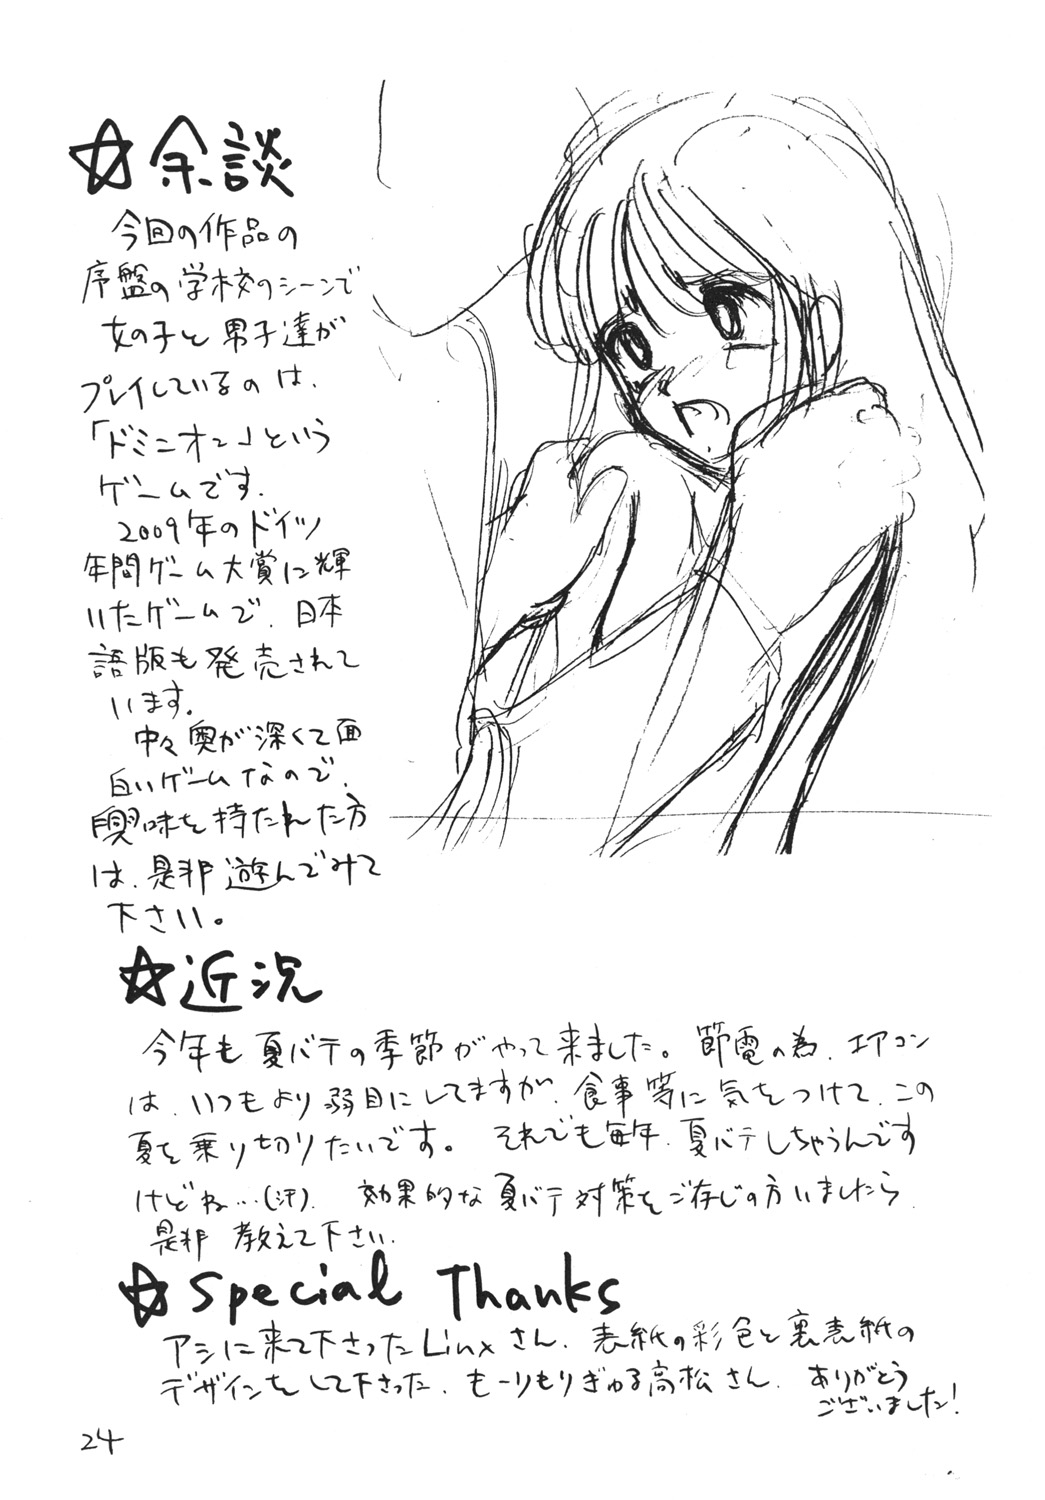 ☆余談
今回の作品の
序盤の学校のシーンで
女の子と男子達が
プレイしているのは、
「ドミニオン」という
ゲームです。
2009年のドイツ
年間ゲーム大賞に輝
いたゲームで、日本
語版も発売されて
います。
中々奥が深くて面
白いゲームなので、
興味を持たれた方
は、是非遊んでみて
下さい。
☆近況
今年も夏バテの季節がやって来ました。節電の為、エアコン
は、いつもより弱目にしてますが、食事等に気をつけて、この
夏を乗り切りたいです。それでも毎年、夏バテしちゃうんです
けどね…(汗)。効果的な夏バテ対策をご存じの方いましたら、
是非教えて下さい。
☆Special Thanks
アシに来て下さったLinxさん、表紙の彩色と裏表紙の
デザインをして下さった、もーりもりぎゅる高松さん、ありがとう
ございました!
24